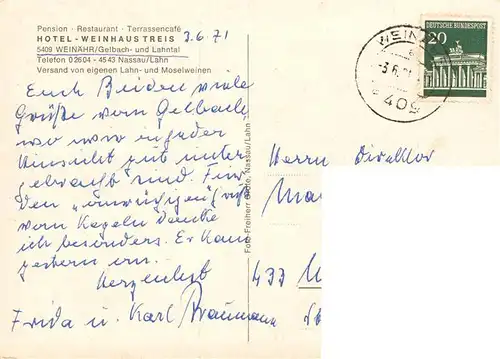 Pension · Restaurant · Terrassencafé
HOTEL - WEINHAUS TREIS 3.6.71
5409 WEINÄHR/Gelbach- und Lahntal
Telefon 02604 - 4543 Nassau/Lahn
Versand von eigenen Lahn- und Moselweinen
Euch Beiden viele
Grüße vom Gelbach,
wo wir in jeder
Hinsicht gut unter-
gebracht sind. Für
den
vom Kegeln danke
ich besonders. Er kam
gestern an.
Herzenlichst
Frida u. Karl Baumann
DEUTSCHE BUNDESPOST
20
WEIN
-3.6.
409
Herrn Direktor
433